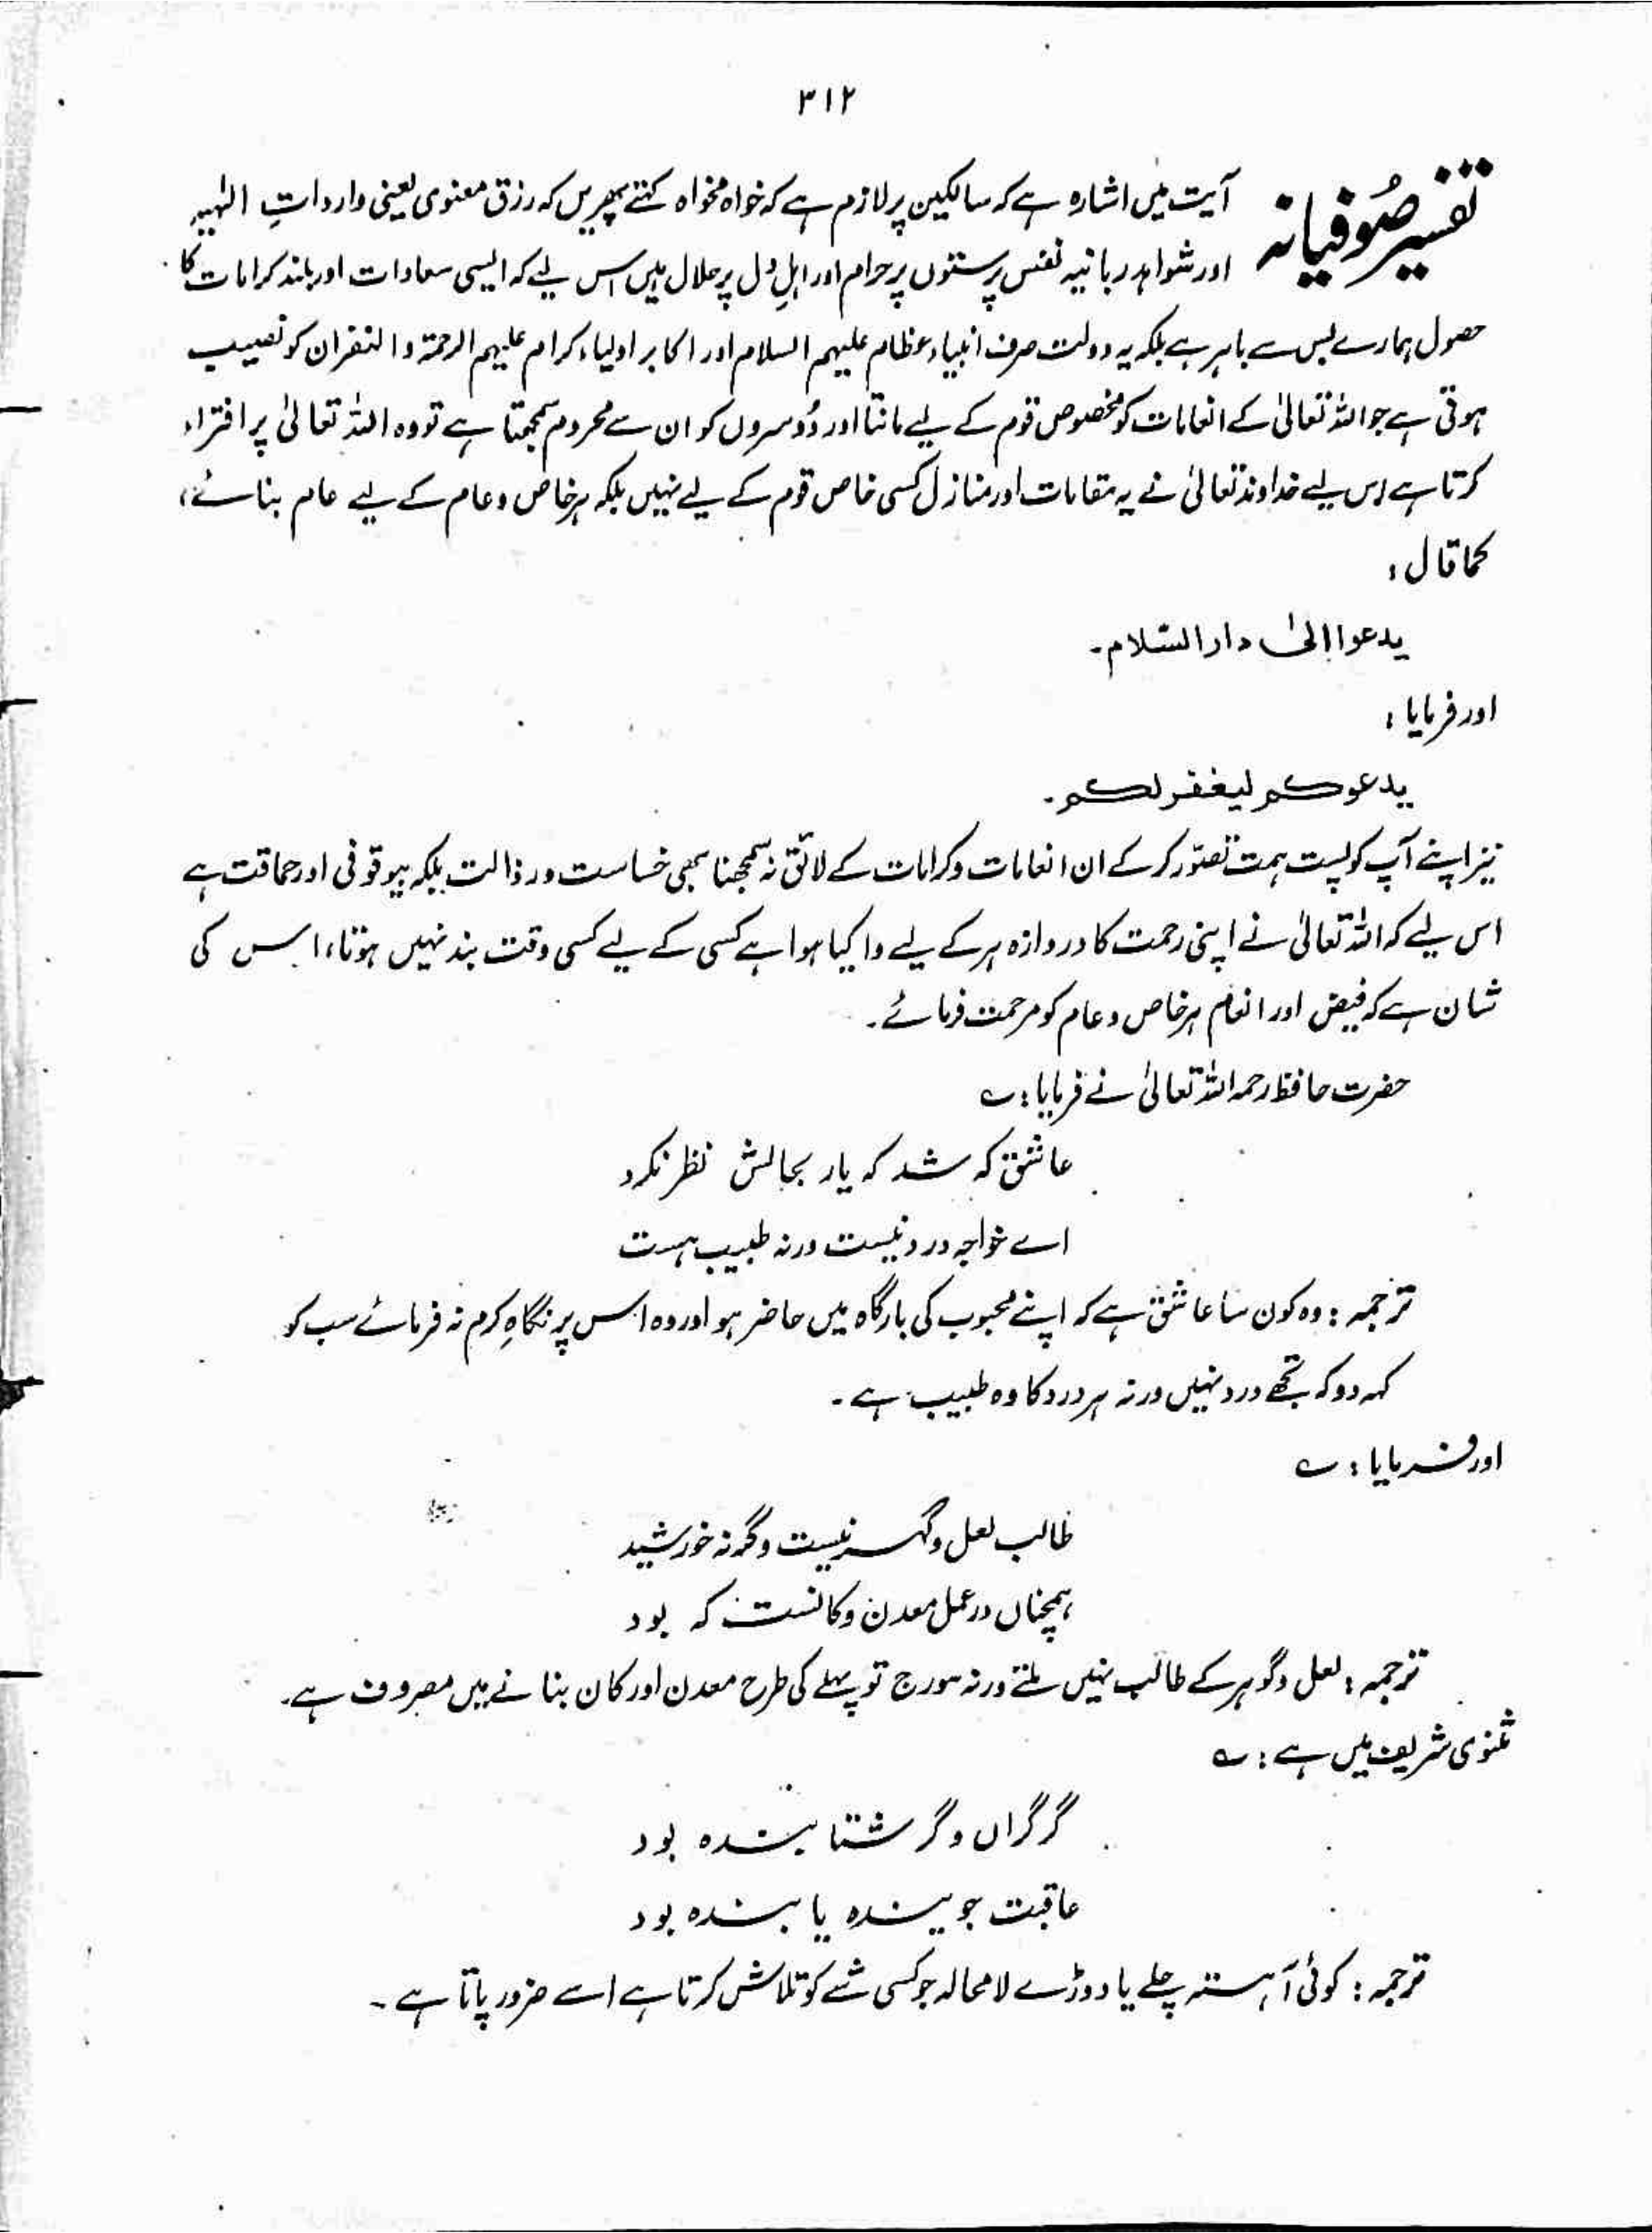 ۳۱۲
تفسیر صُوفیانہ
آیت میں اشارہ ہے کہ سالکین پر لازم ہے کہ خواہ مخواہ کہتے پھریں کہ رزق معنوی یعنی وارداتِ الٰہیہ
اور شواہد ربانیہ نفس پرستوں پر حرام اور اہلِ دل پر حلال ہیں اس لیے کہ ایسی سعادات اور بلند کرامات کا
حصول ہمارے بس سے باہر ہے بلکہ یہ دولت صرف انبیاء عظام علیہم السلام اور اکابر اولیاء کرام علیہم الرحمۃ و الغفران کو نصیب
ہوتی ہے جو اللہ تعالیٰ کے انعامات کو مخصوص قوم کے لیے مانتا اور دُوسروں کو ان سے محروم سمجھتا ہے تو وہ اللہ تعالیٰ پر افتراء
کرتا ہے اس لیے خداوند تعالیٰ نے یہ مقامات اور منازل کسی خاص قوم کے لیے نہیں بلکہ ہر خاص و عام کے لیے عام بنائے،
کما قال :
یدعوا الیٰ دار السّلام۔
اور فرمایا :
یدعوکم لیغفر لکم۔
نیز اپنے آپ کو پست ہمت تصوّر کر کے ان انعامات و کرامات کے لائق نہ سمجھنا بھی خساست و رذالت بلکہ بیوقوفی اور حماقت ہے
اس لیے کہ اللہ تعالیٰ نے اپنی رحمت کا دروازہ ہر کے لیے وا کیا ہوا ہے کسی کے لیے کسی وقت بند نہیں ہوتا، اس کی
شان ہے کہ فیض اور انعام ہر خاص و عام کو مرحمت فرمائے۔
حضرت حافظ رحمہ اللہ تعالیٰ نے فرمایا : ؎
عاشق کہ شد کہ یار بجالش نظر نکرد
اے خواجہ درد نیست ورنہ طبیب ہست
ترجمہ : وہ کون سا عاشق ہے کہ اپنے محبوب کی بارگاہ میں حاضر ہو اور وہ اس پر نگاہِ کرم نہ فرمائے سب کو
کہہ دو کہ تجھے درد نہیں ورنہ ہر درد کا وہ طبیب ہے۔
اور فرمایا : ؎
طالب لعل و گہر نیست وگرنہ خورشید
ہمچناں در عمل معدن و کانست کہ بود
ترجمہ : لعل و گوہر کے طالب نہیں ملتے ورنہ سورج تو پہلے کی طرح معدن اور کان بنانے میں مصروف ہے۔
مثنوی شریف میں ہے : ؎
گر گراں و گر شتابندہ بود
عاقبت جویندہ یابندہ بود
ترجمہ : کوئی آہستہ چلے یا دوڑے لامحالہ جو کسی شے کو تلاش کرتا ہے اسے ضرور پاتا ہے۔